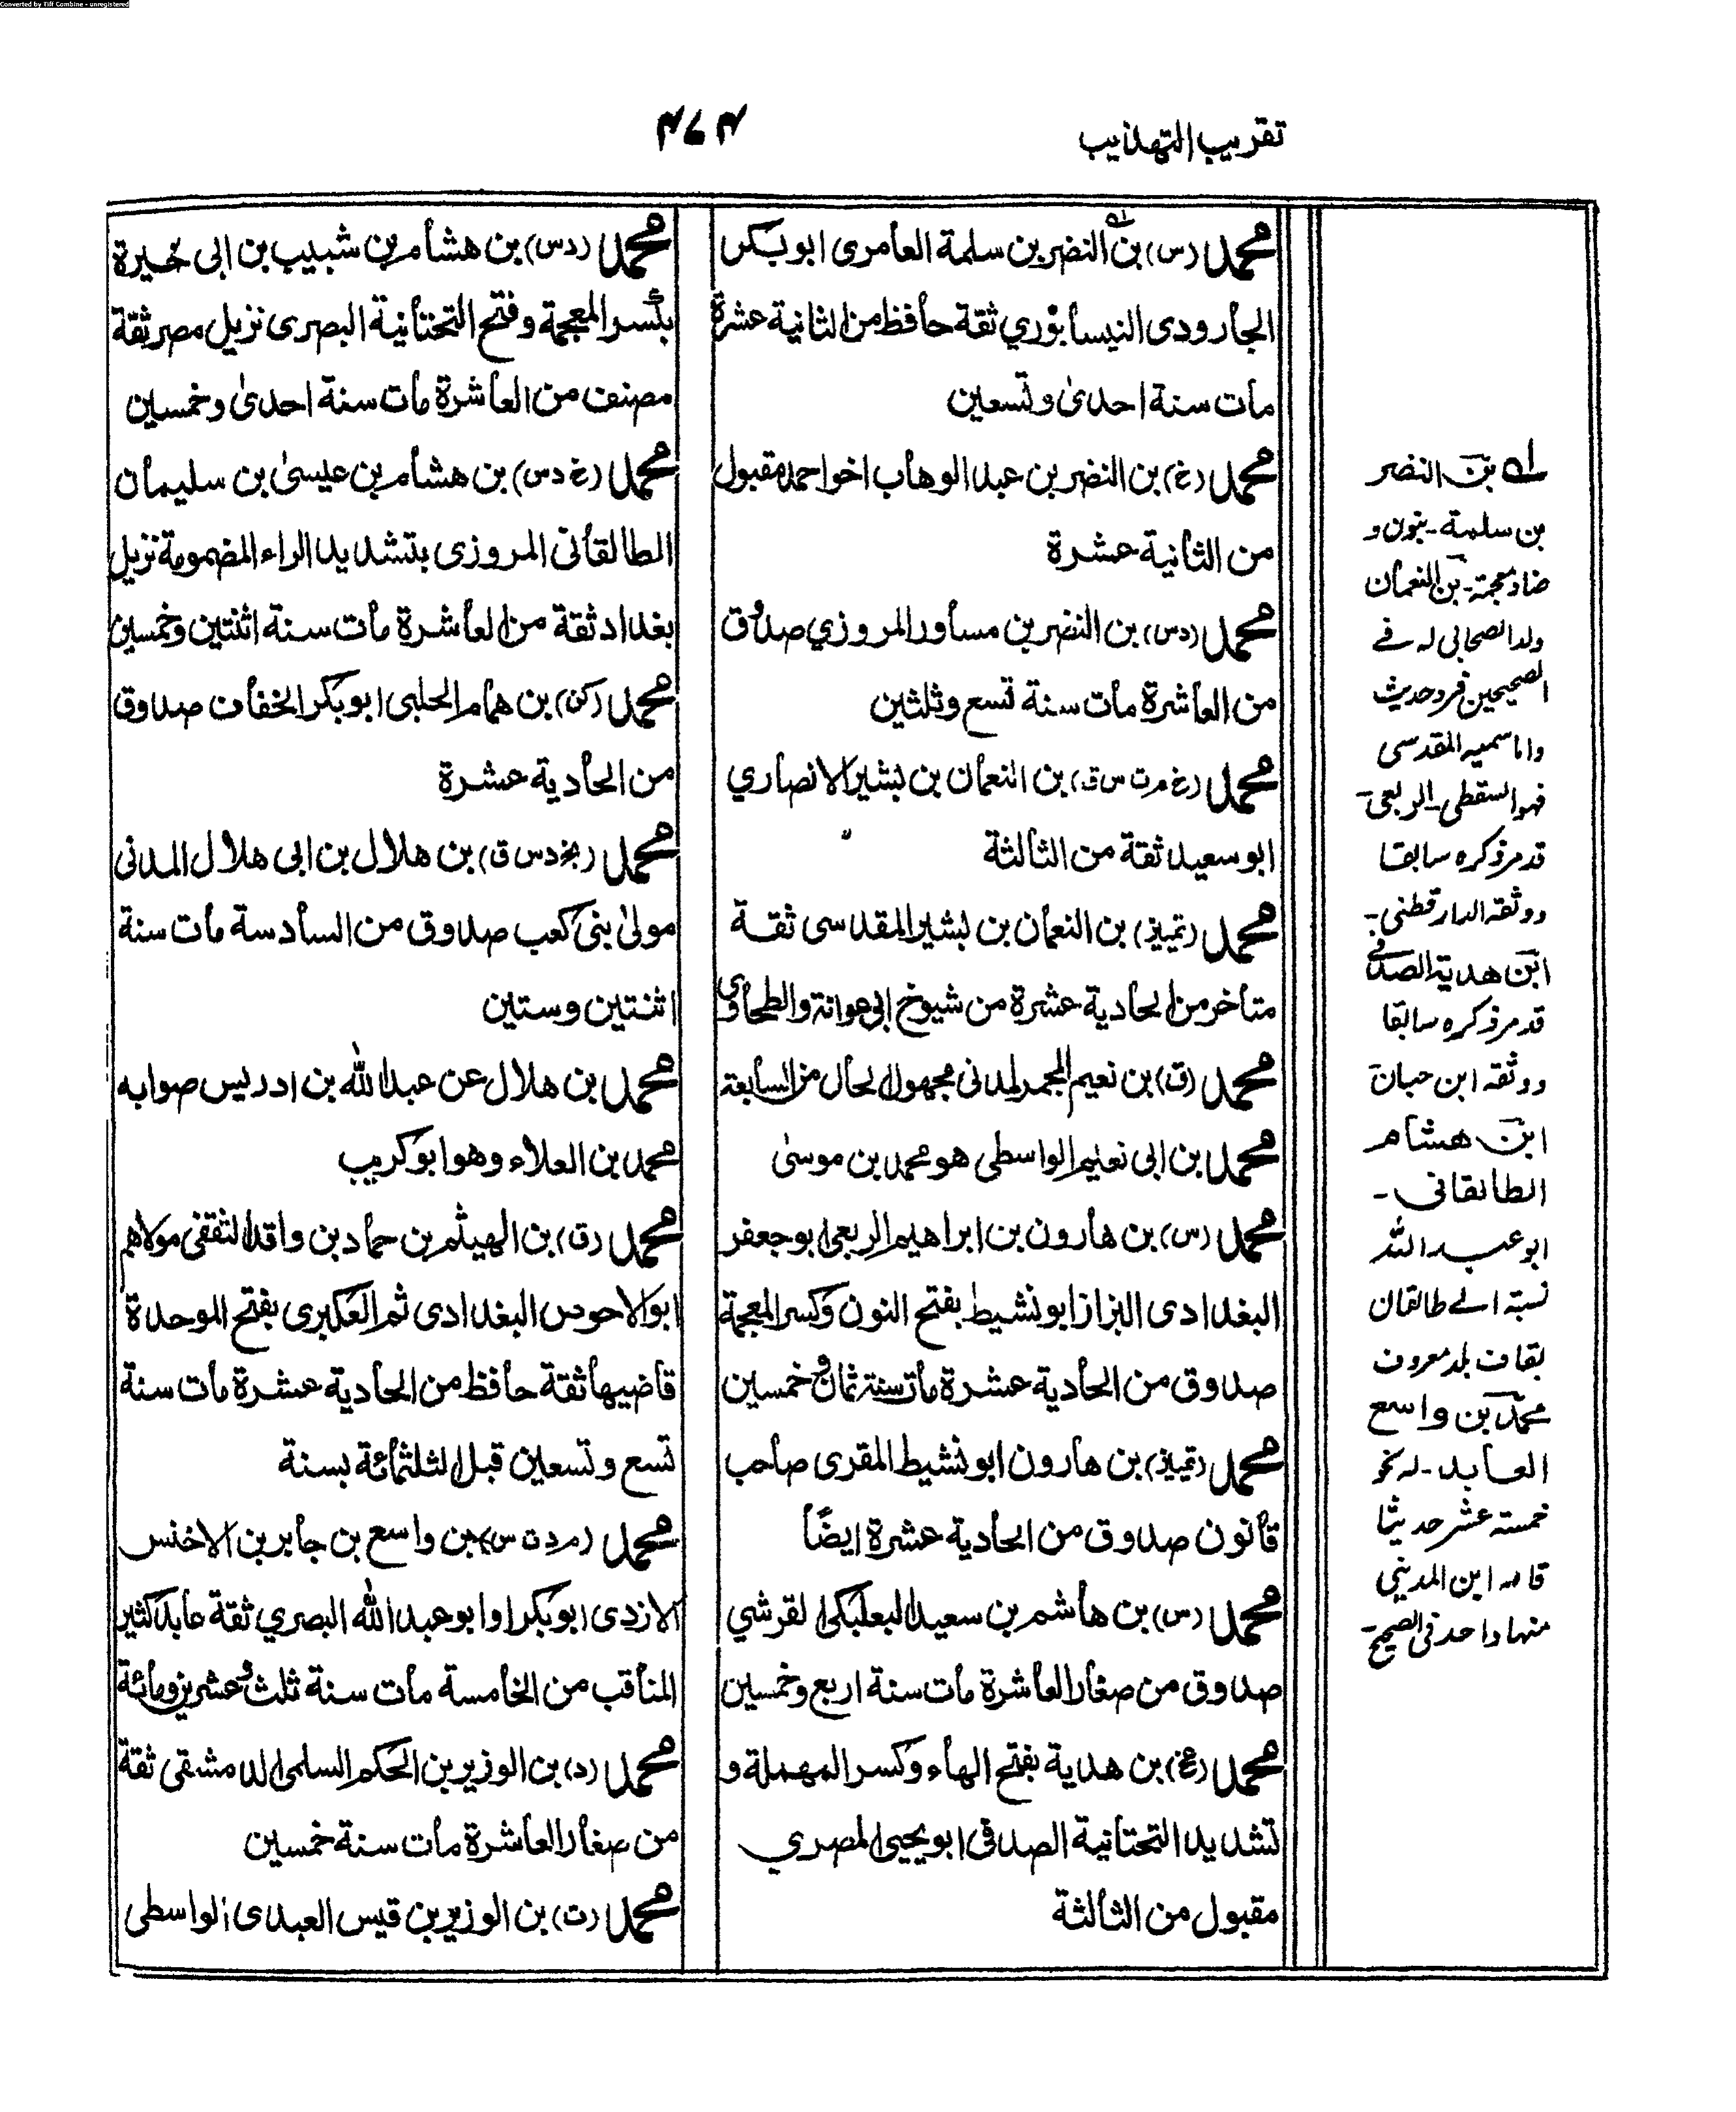 Converted by Tiff Combine - unregistered
تقريب التهذيب
محمد (س) بن النضر بن سلمة العامرى ابوبكر
الجارودى النيسابوري ثقة حافظ من الثانية عشرة
مات سنة احدى وتسعين
محمد (خ) بن النضر بن عبد الوهاب اخو احمد مقبول
من الثانية عشرة
محمد (دس) بن النضر بن مساور المروزي صدوق
من العاشرة مات سنة تسع وثلثين
محمد (خ م ت س ق) بن النعمان بن بشير الانصاري
ابو سعيد ثقة من الثالثة
محمد (تمييز) بن النعمان بن بشير المقدسى ثقة
متاخر من الحادية عشرة من شيوخ ابى عوانة والطحاوى
محمد (ق) بن نعيم المجمر المدنى مجهول الحال من السابعة
محمد بن ابى نعيم الواسطى هو محمد بن موسى
محمد (س) بن هارون بن ابراهيم الربعى ابو جعفر
البغدادى البزاز ابو نشيط بفتح النون وكسر المعجمة
صدوق من الحادية عشرة مات سنة ثمان وخمسين
محمد (تمييز) بن هارون ابو نشيط المقرى صاحب
قانون صدوق من الحادية عشرة ايضًا
محمد (س) بن هاشم بن سعيد البعلبكى القرشي
صدوق من صغار العاشرة مات سنة اربع وخمسين
محمد (عخ) بن هدية بفتح الهاء وكسر المهملة و
تشديد التحتانية الصدفى ابو يحيى المصري
مقبول من الثالثة
محمد (دس) بن هشام بن شبيب بن ابى خيرة
بكسر المعجمة وفتح التحتانية البصرى نزيل مصر ثقة
مصنف من العاشرة مات سنة احدى وخمسين
محمد (خ دس) بن هشام بن عيسى بن سليمان
الطالقانى المروزى بتشديد الراء المضمومة نزيل
بغداد ثقة من العاشرة مات سنة اثنتين وخمسين
محمد (كن) بن همام الحلبى ابوبكر الخفاف صدوق
من الحادية عشرة
محمد (بخ دس ق) بن هلال بن ابى هلال المدنى
مولى بنى كعب صدوق من السادسة مات سنة
اثنتين وستين
محمد بن هلال عن عبد الله بن ادريس صوابه
محمد بن العلاء وهو ابو كريب
محمد (ق) بن الهيثم بن حماد بن واقد الثقفى مولاهم
ابو الاحوص البغدادى ثم العكبرى بفتح الموحدة
قاضيها ثقة حافظ من الحادية عشرة مات سنة
تسع وتسعين قبل الثلثمائة بسنة
محمد (م د ت س) بن واسع بن جابر بن الاخنس
الازدى ابوبكر او ابو عبد الله البصري ثقة عابد كثير
المناقب من الخامسة مات سنة ثلث وعشرين ومائة
محمد (د) بن الوزير بن الحكم السلمى الدمشقى ثقة
من صغار العاشرة مات سنة خمسين
محمد (ت) بن الوزير بن قيس العبدى الواسطى
بن النضر
بن سلمة - بنون و
ضاد معجمة - بن النعمان
ولد الصحابى له فے
الصحيحين فرد حديث
واما سميه المقدسى
فهو السقطى - الربعى -
قد مر ذكره سابقا
ووثقه الدارقطنى -
ابن هدية الصدفى
قد مر ذكره سابقا
ووثقه ابن حبان
ابن هشام
الطالقانى -
ابو عبد الله
نسبة الے طالقان
بقاف بلد معروف
محمد بن واسع
العابد - له نحو
خمسة عشر حديثا
قاله ابن المدينى
منها واحد فى الصحيح -